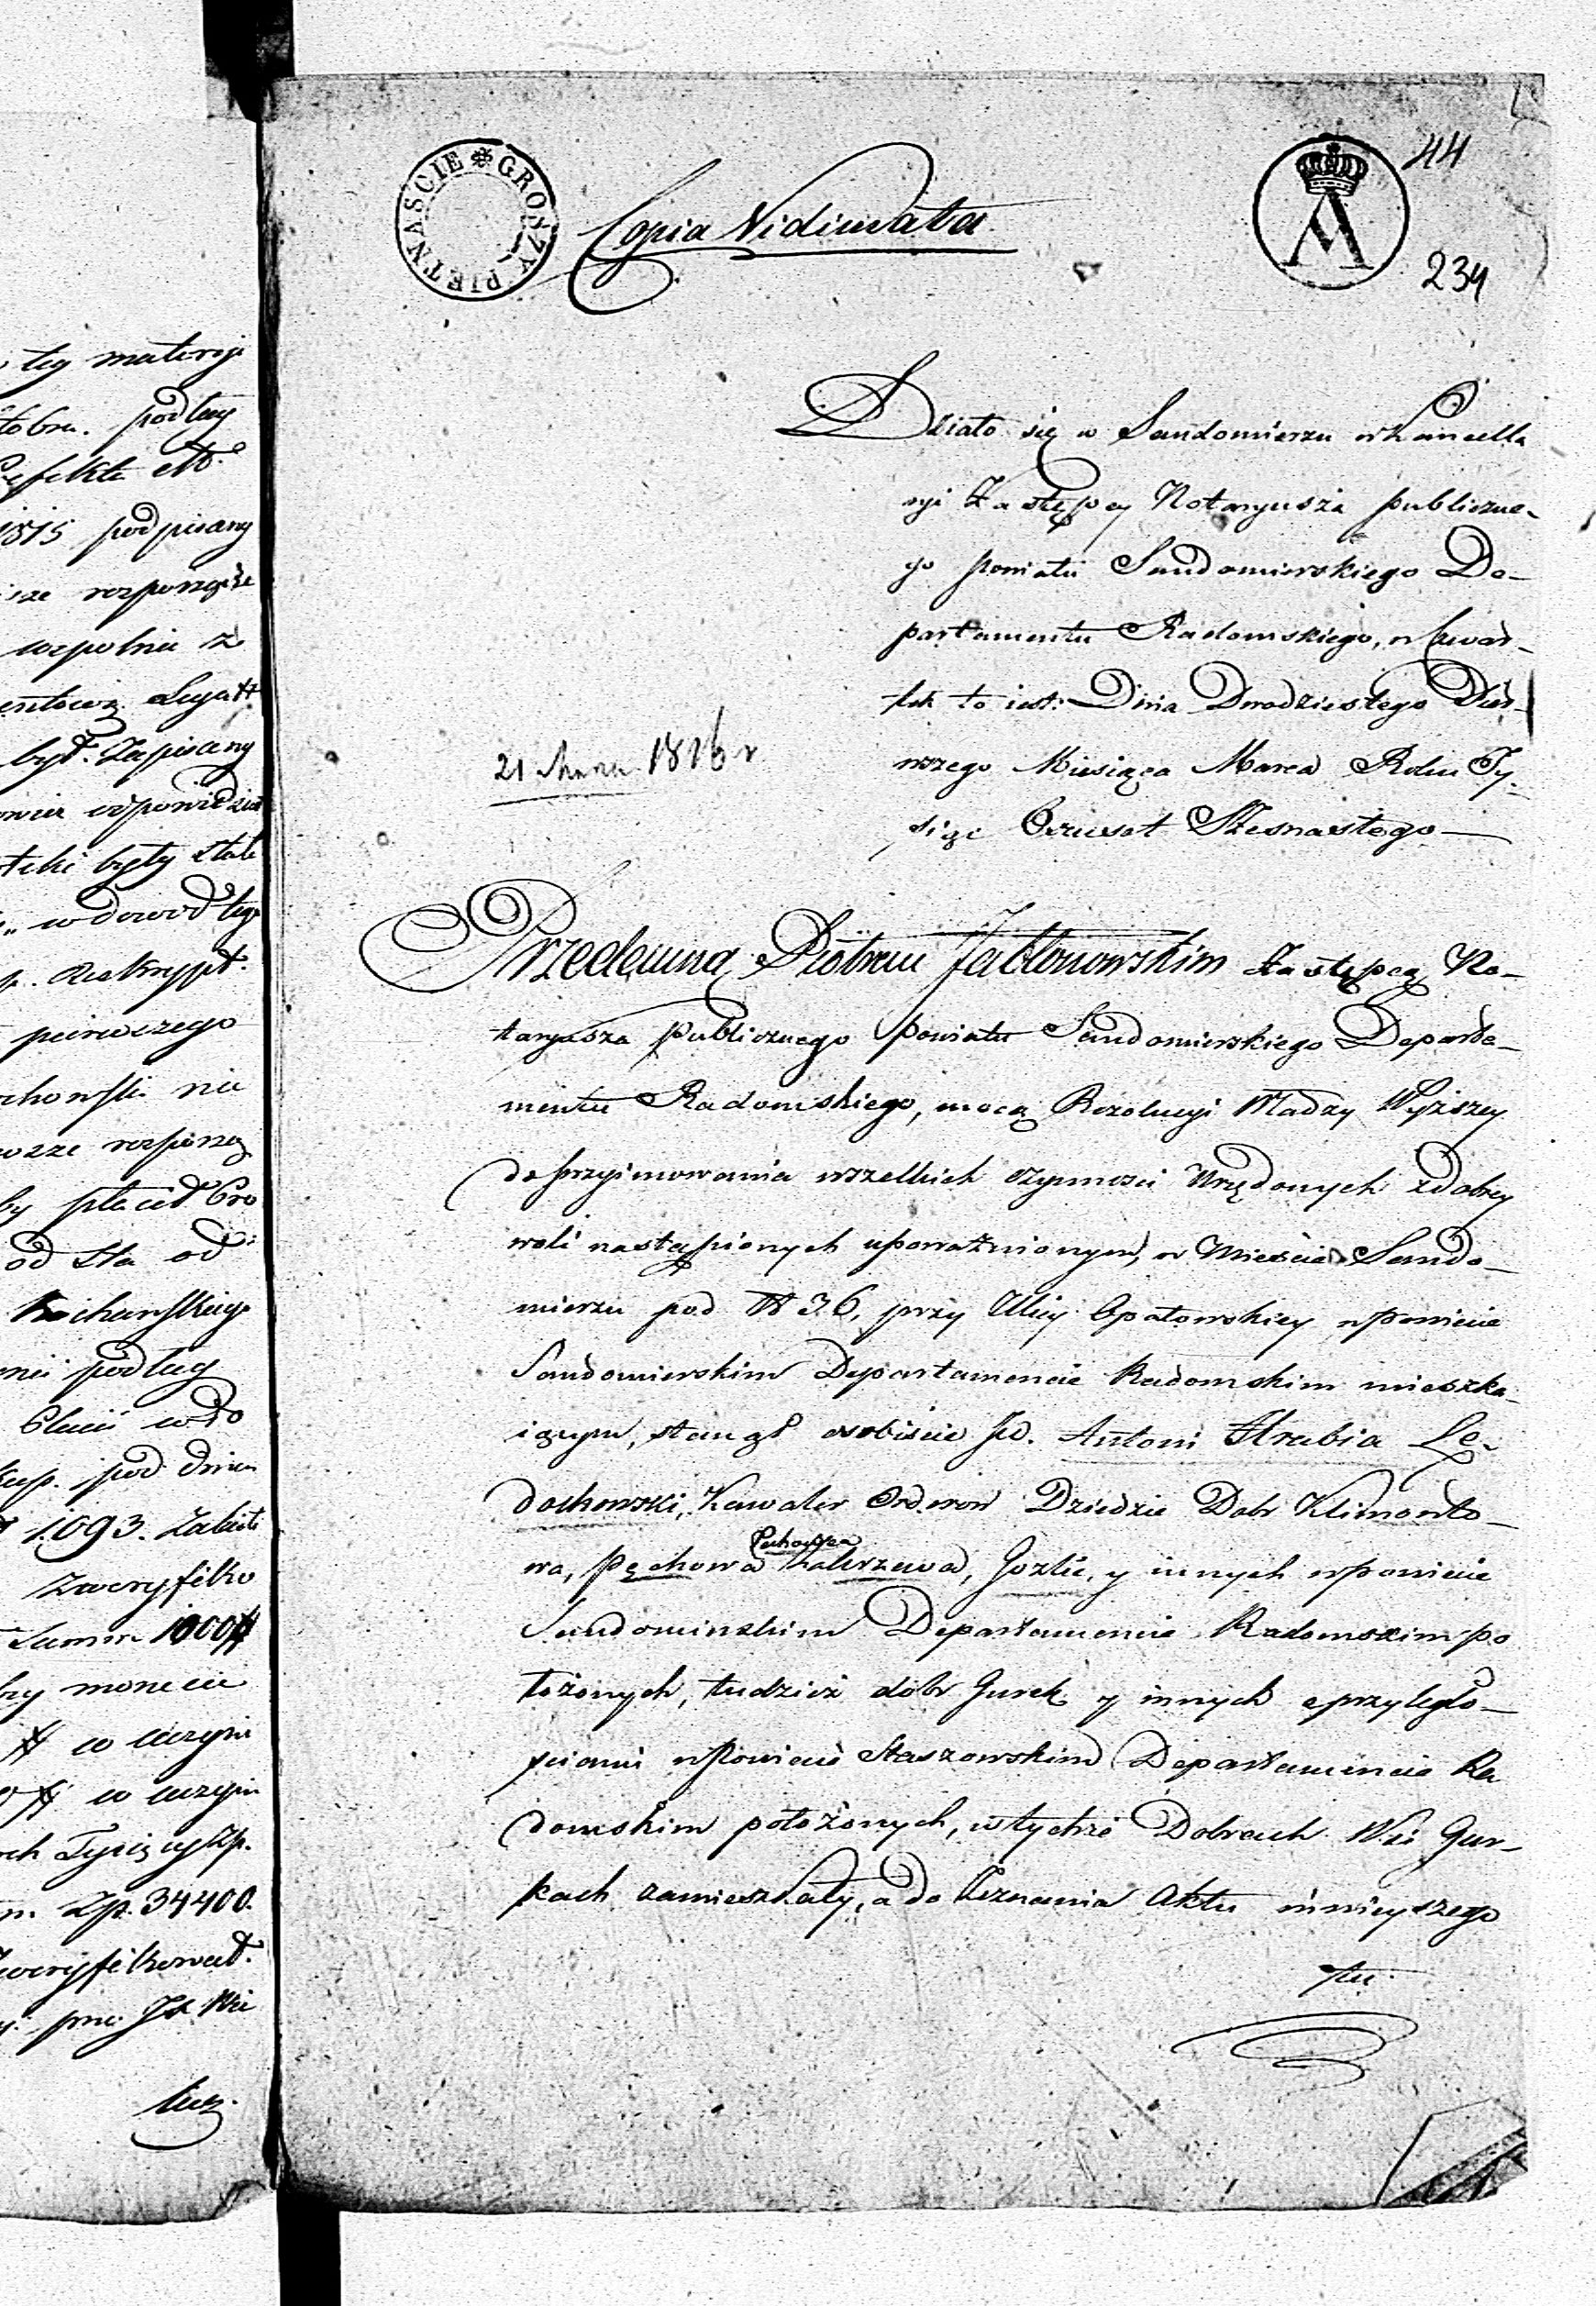 tey materyi
podług
1815 podpisany
wspolnie z
był. Zapisany
były stale
w dowod tego
pierwszego
nie
od sta od
podług
pod dniem
1093.
Zweryfiko
Summa 1000#
monecie
Tysięcy Zp.
Zp. 34400.
GROSZY PIETNASCIE
Copia Vidimata
A
44
234
Działo się w Sandomierzu w Kancella
ryi Zastępcy Notaryusza publiczne-
go Powiatu Sandomierskiego De-
partamentu Radomskiego, w Czwar-
tek to iest: Dnia Dwudziestego Pier-
wszego Miesiąca Marca Roku Ty-
siąc Ośmset Szesnastego
21 Marca 1816 r
Przedemną Piotrem Jabłonowskim Zastępcą No-
taryusza publicznego Powiatu Sandomierskiego Departa-
mentu Radomskiego, mocą Rezolucyi Władzy Wyższey
do przyimowania wszelkich czynnosci Urzędowych z dobrey
woli nastąpionych upoważnionym, w Mieście Sando-
mierzu pod N 36, przy Ulicy Opatowskiey w Powiecie
Sandomierskim Departamencie Radomskim mieszka-
iącym, stanął osobiscie JW. Antoni Hrabia Le-
dochowski, Kawaler Orderow Dziedzic Dobr Klimonto-
wa, Pęchowa Pechowca Zakrzewa, Gozlic, y innych w Powiecie
Sandomirskim Departamencie Radomskim po
łożonych, tudzież dobr Gurek y innych z przyległo-
sciami w Powiecie Staszowskim Departamencie Ra
domskim położonych, w tychże Dobrach Wsi Gur-
kach zamieszkały, a do Zeznania Aktu ninieyszego